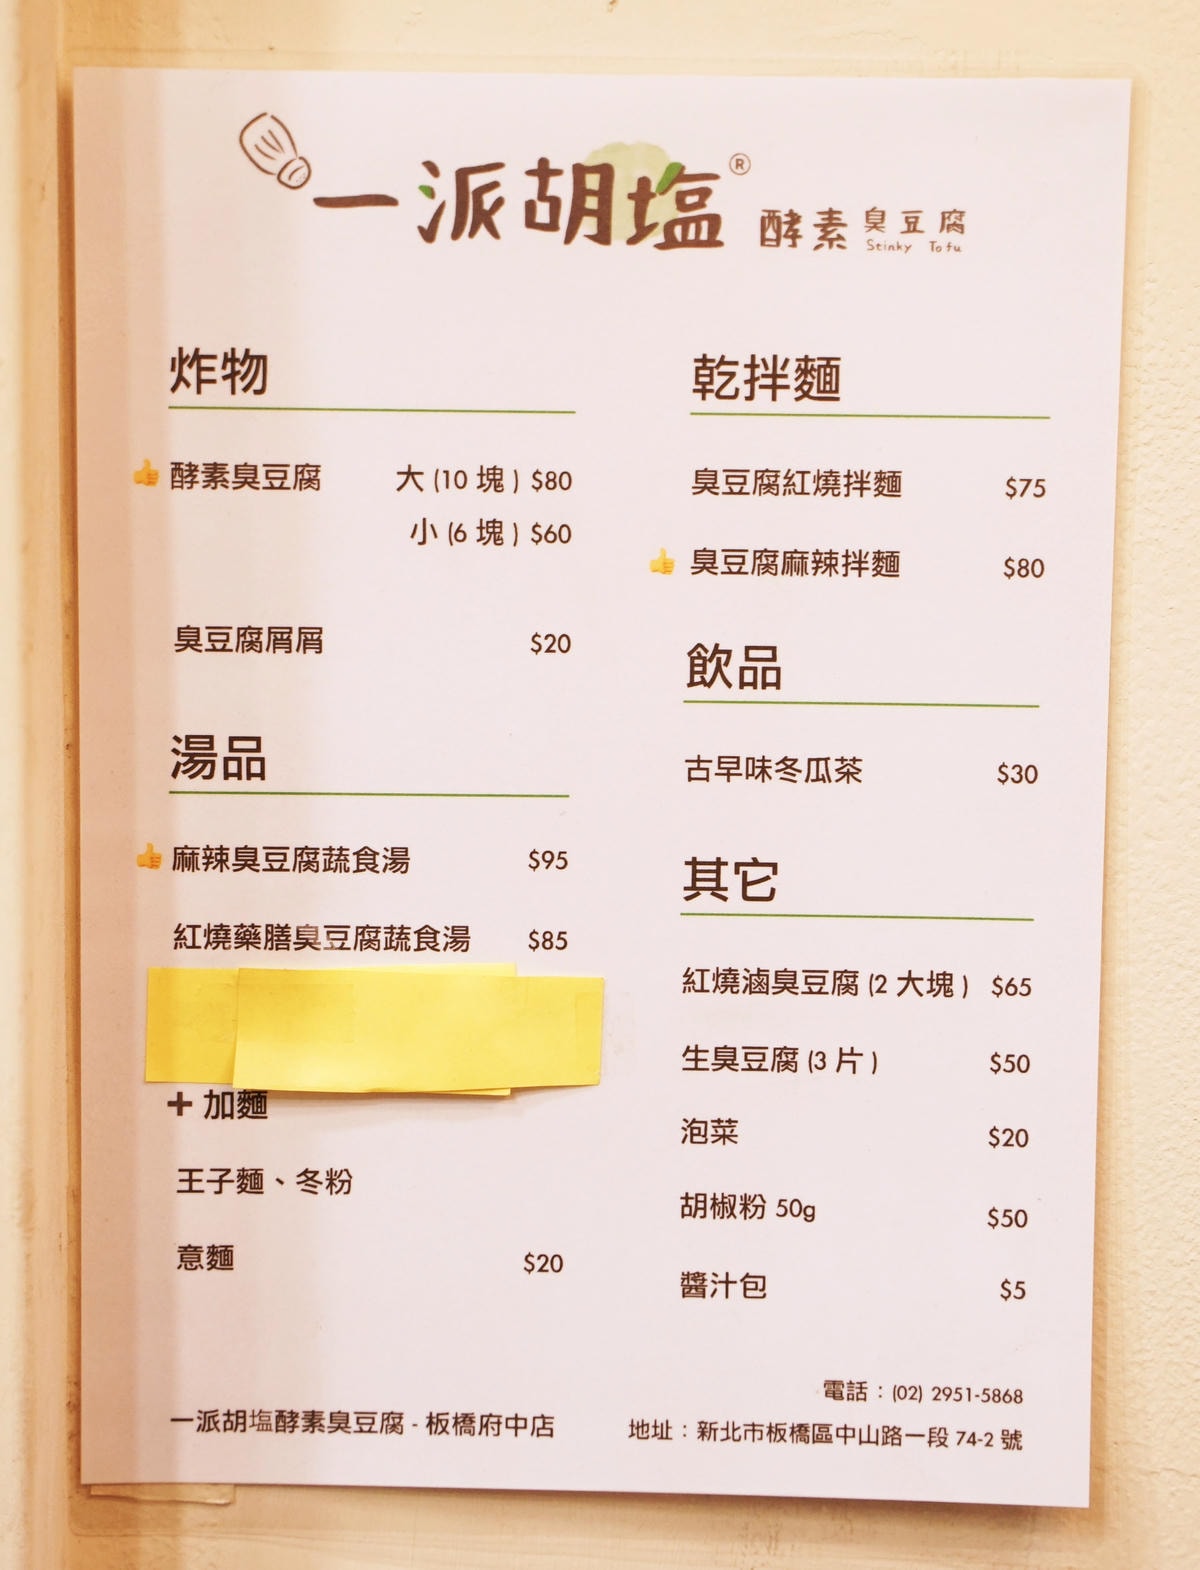 一派胡塩®
酵素臭豆腐
Stinky Tofu
炸物
酵素臭豆腐 大 (10 塊) $80
小 (6 塊) $60
臭豆腐屑屑 $20
湯品
麻辣臭豆腐蔬食湯 $95
紅燒藥膳臭豆腐蔬食湯 $85
+ 加麵
王子麵、冬粉
意麵 $20
乾拌麵
臭豆腐紅燒拌麵 $75
臭豆腐麻辣拌麵 $80
飲品
古早味冬瓜茶 $30
其它
紅燒滷臭豆腐 (2 大塊) $65
生臭豆腐 (3 片) $50
泡菜 $20
胡椒粉 50g $50
醬汁包 $5
一派胡塩酵素臭豆腐 - 板橋府中店
電話：(02) 2951-5868
地址：新北市板橋區中山路一段 74-2 號